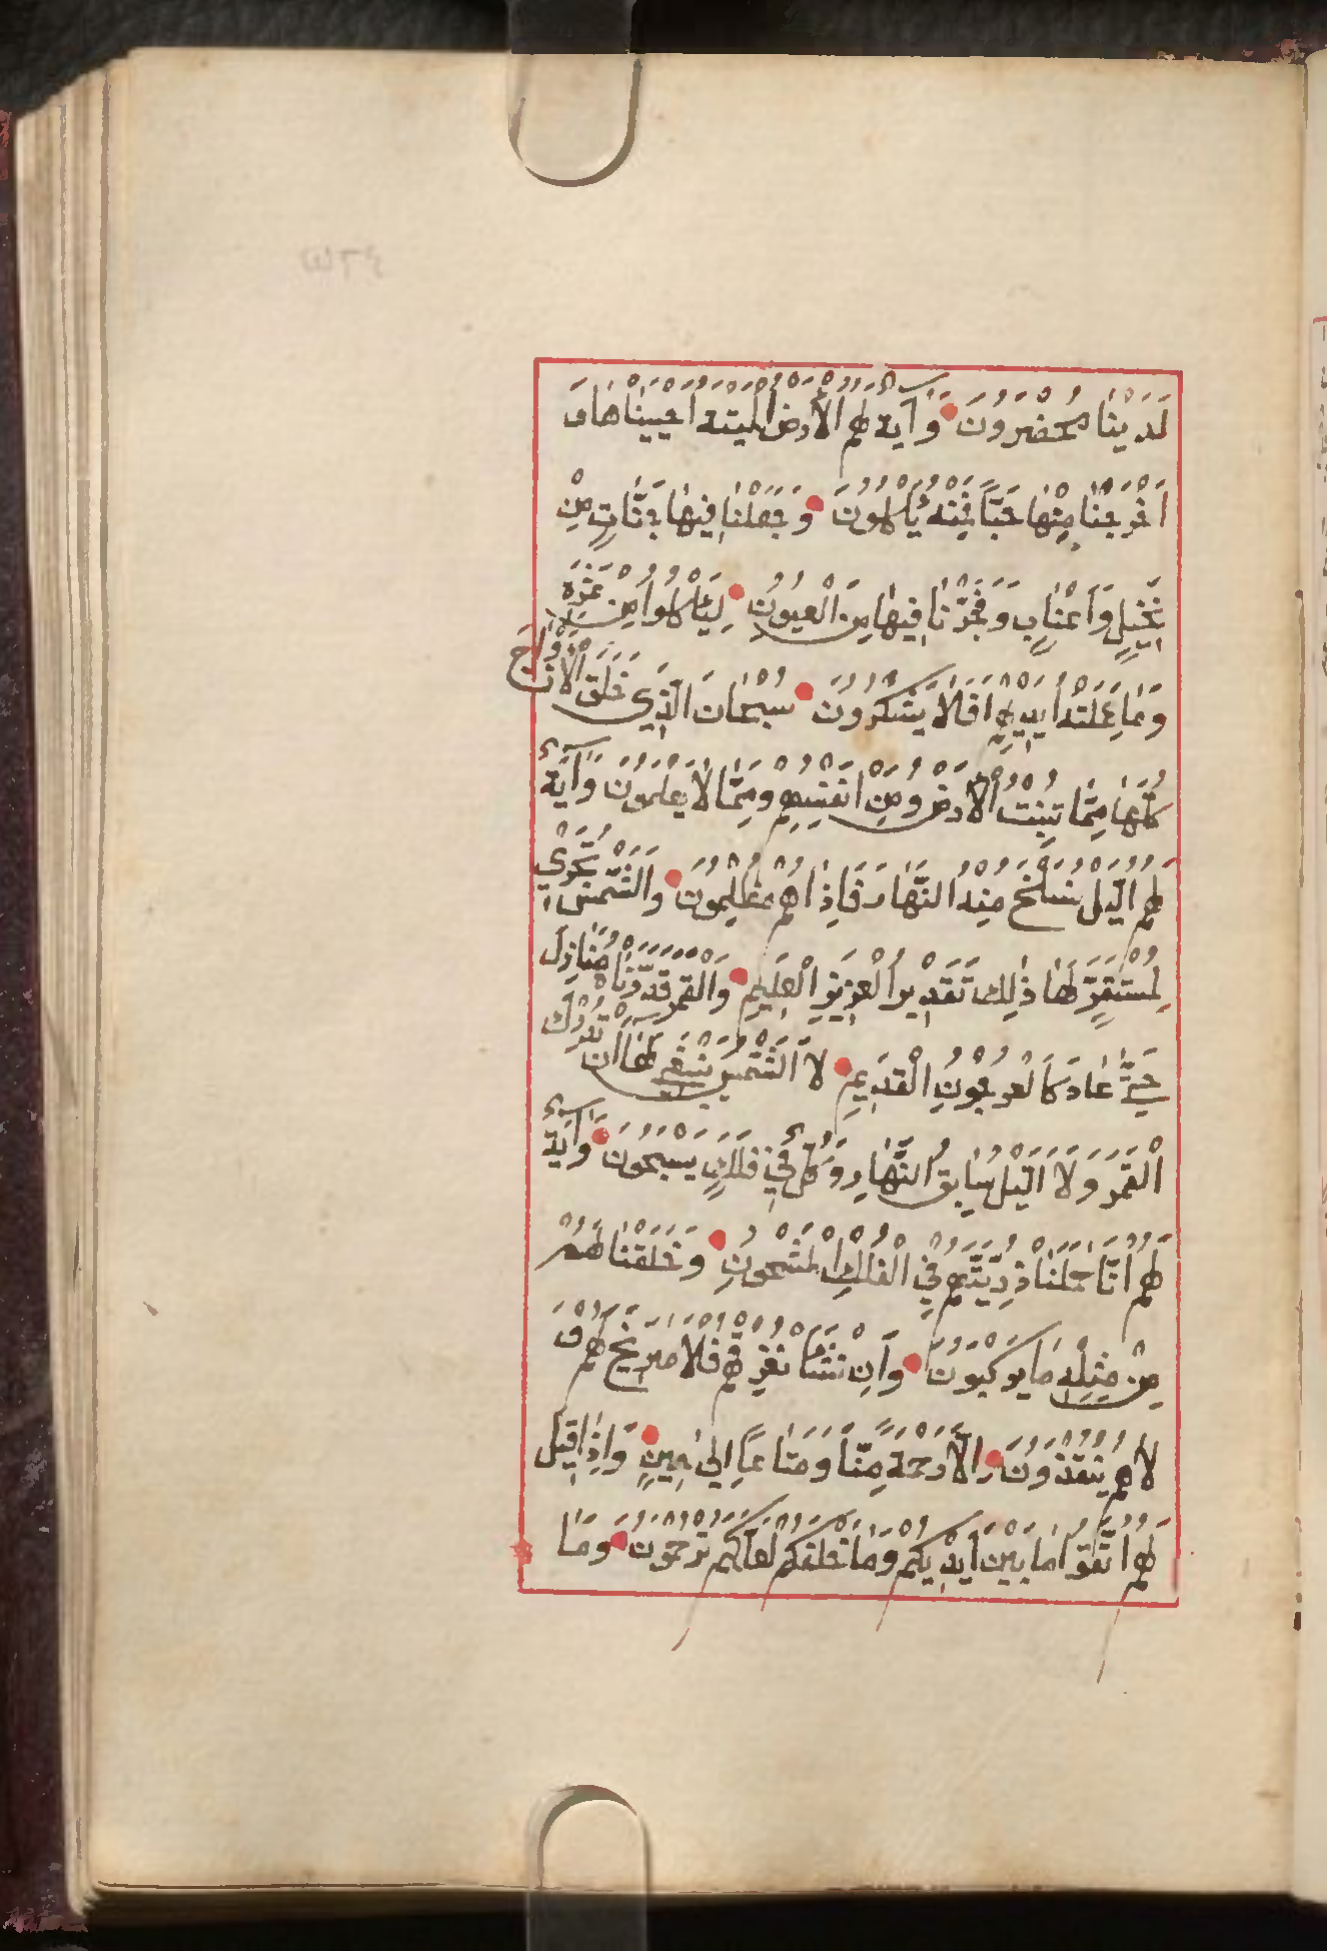 لَدَيْنَا مُحْضَرُونَ وَآيَةٌ لَهُمُ الْأَرْضُ الْمَيْتَةُ أَحْيَيْنَاهَا وَ
اَخْرَجْنَا مِنْهَا حَبًّا فَمِنْهُ يَأْكُلُونَ وَجَعَلْنَا فِيهَا جَنَّاتٍ مِنْ
نَخِيلٍ وَاَعْنَابٍ وَفَجَّرْنَا فِيهَا مِنَ الْعُيُونِ لِيَأْكُلُوا مِنْ ثَمَرِهِ
وَمَا عَمِلَتْهُ اَيْدِيهِمْ اَفَلَا يَشْكُرُونَ سُبْحَانَ الَّذِي خَلَقَ الْاَزْوَاجَ
كُلَّهَا مِمَّا تُنْبِتُ الْاَرْضُ وَمِنْ اَنْفُسِهِمْ وَمِمَّا لَا يَعْلَمُونَ وَآيَةٌ
لَهُمُ الَّيْلُ نَسْلَخُ مِنْهُ النَّهَارَ فَاِذَا هُمْ مُظْلِمُونَ وَالشَّمْسُ تَجْرِي
لِمُسْتَقَرٍّ لَهَا ذٰلِكَ تَقْدِيرُ الْعَزِيزِ الْعَلِيمِ وَالْقَمَرَ قَدَّرْنَاهُ مَنَازِلَ
حَتَّى عَادَ كَالْعُرْجُونِ الْقَدِيمِ لَا الشَّمْسُ يَنْبَغِي لَهَا اَنْ تُدْرِكَ
الْقَمَرَ وَلَا الَّيْلُ سَابِقُ النَّهَارِ وَكُلٌّ فِي فَلَكٍ يَسْبَحُونَ وَآيَةٌ
لَهُمْ اَنَّا حَمَلْنَا ذُرِّيَّتَهُمْ فِي الْفُلْكِ الْمَشْحُونِ وَخَلَقْنَا لَهُمْ
مِنْ مِثْلِهِ مَا يَرْكَبُونَ وَاِنْ نَشَأْ نُغْرِقْهُمْ فَلَا صَرِيخَ لَهُمْ وَ
لَا هُمْ يُنْقَذُونَ اِلَّا رَحْمَةً مِنَّا وَمَتَاعًا اِلَى حِينٍ وَاِذَا قِيلَ
لَهُمُ اتَّقُوا مَا بَيْنَ اَيْدِيكُمْ وَمَا خَلْفَكُمْ لَعَلَّكُمْ تُرْحَمُونَ وَمَا